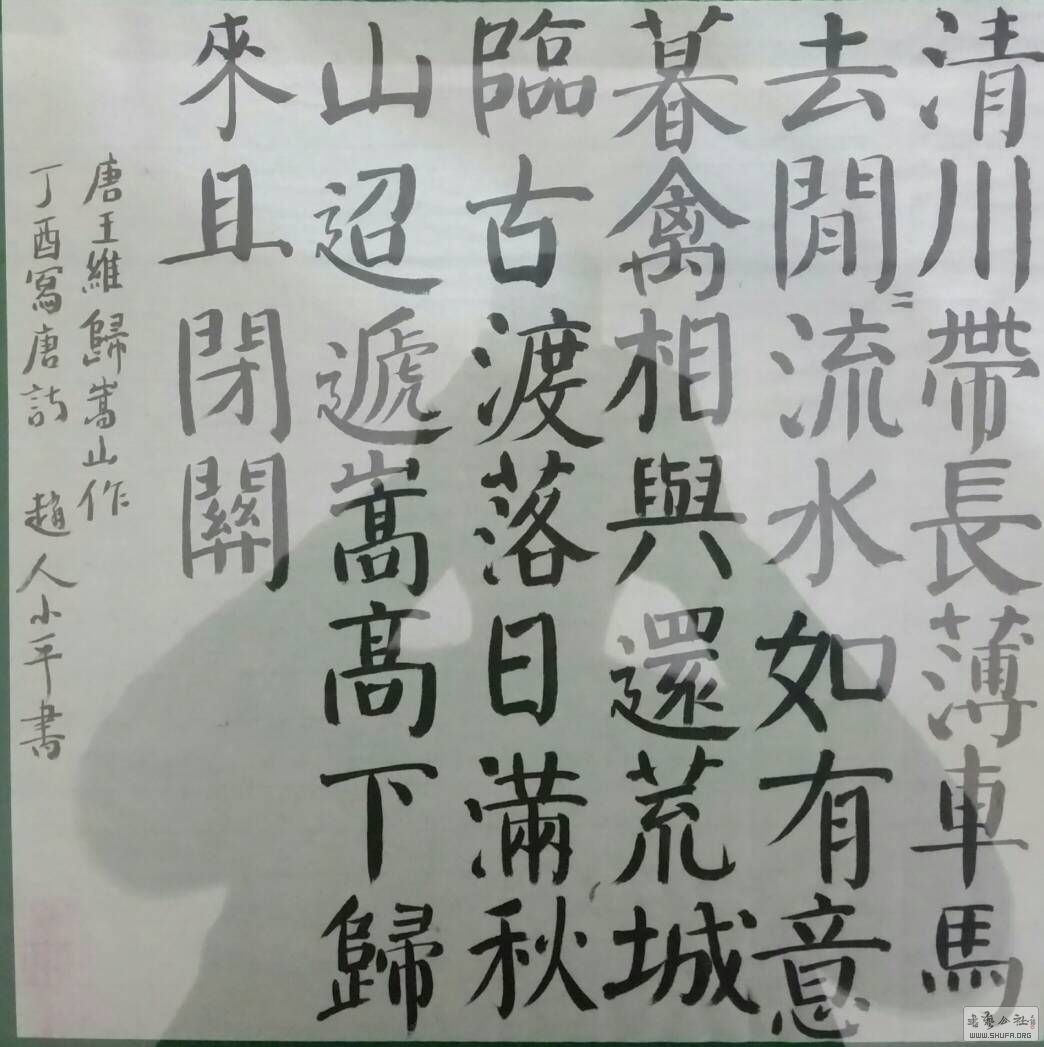 清川帶長薄車馬
去閒〻流水如有意
暮禽相與還荒城
臨古渡落日滿秋
山迢遞嵩高下歸
來且閉關
唐王維歸嵩山作
丁酉寫唐詩 趙人小平書
書藝公社
WWW.SHUFA.ORG